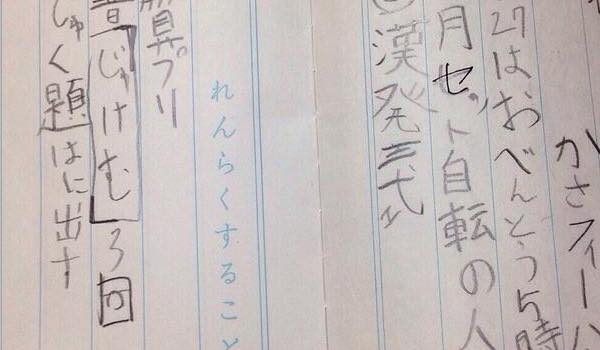 かさフィー
27はおべんとう5時
月セット自転の人
漢発三
れんらくすること
算プリ
音「じゅけむ」3回
しゅく題はに出す